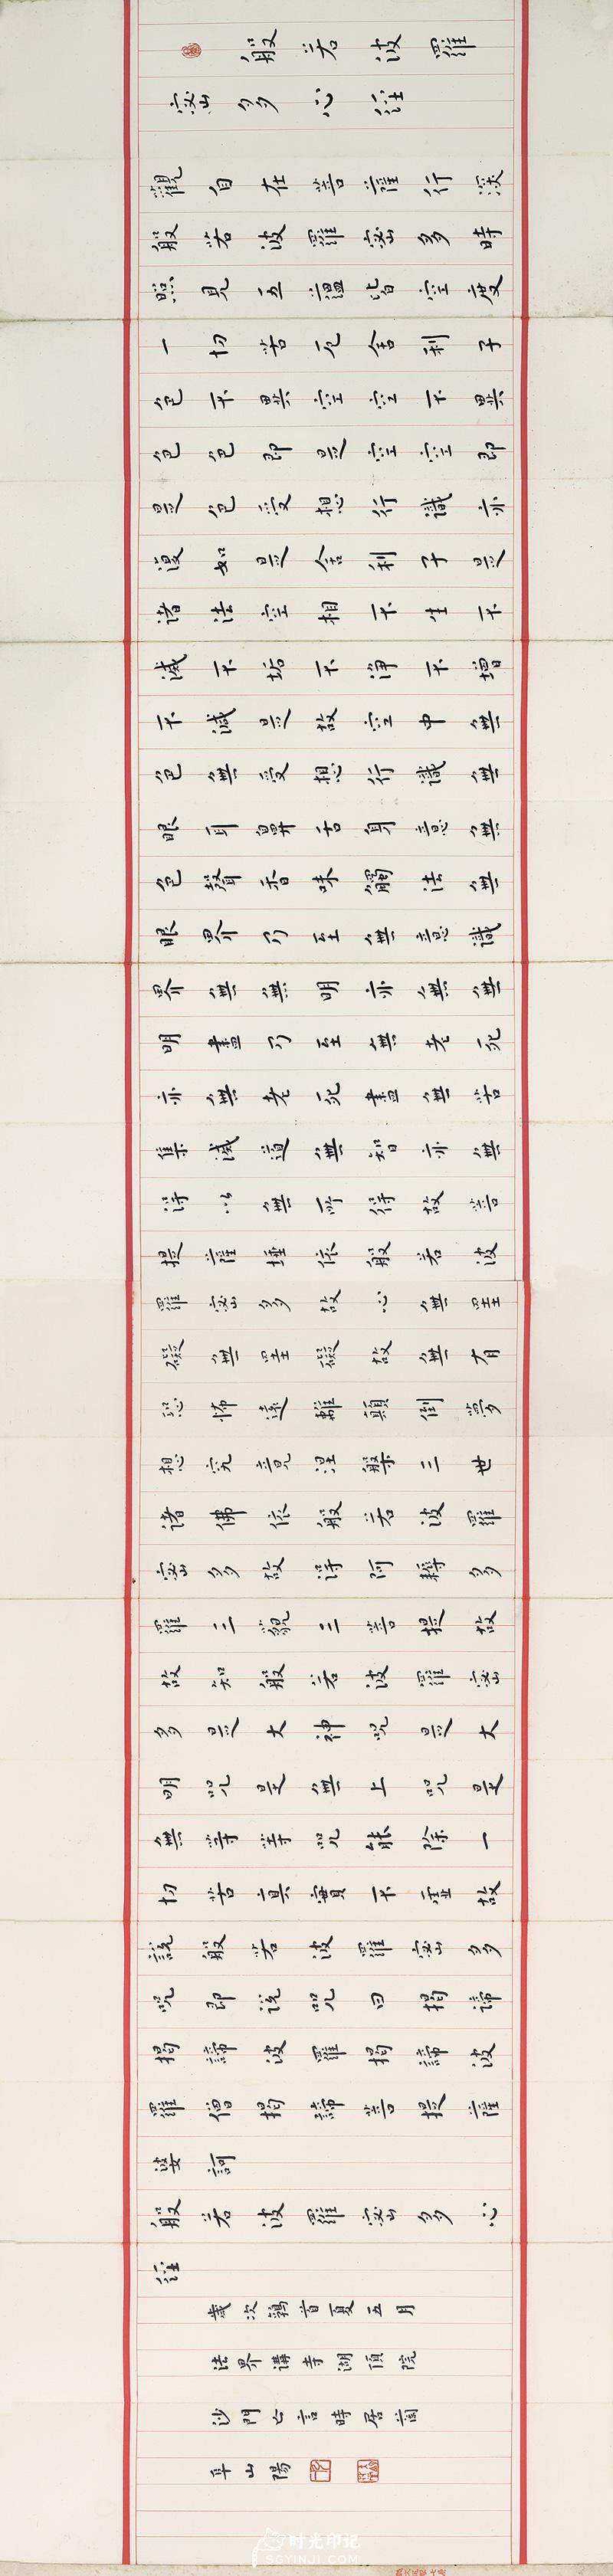 般若波羅
密多心經
觀自在菩薩行深
般若波羅密多時
照見五蘊皆空度
一切苦厄舍利子
色不異空空不異
色色即是空空即
是色受想行識亦
復如是舍利子是
諸法空相不生不
滅不垢不淨不增
不減是故空中無
色無受想行識無
眼耳鼻舌身意無
色聲香味觸法無
眼界乃至無意識
界無無明亦無無
明盡乃至無老死
亦無老死盡無苦
集滅道無智亦無
得以無所得故菩
提薩埵依般若波
羅密多故心無罣
礙無罣礙故無有
恐怖遠離顛倒夢
想究竟涅槃三世
諸佛依般若波羅
密多故得阿耨多
羅三藐三菩提故
故知般若波羅密
多是大神咒是大
明咒是無上咒是
無等等咒能除一
切苦真實不虛故
說般若波羅密多
咒即說咒曰揭諦
揭諦波羅揭諦波
羅僧揭諦菩提薩
婆訶
般若波羅密多心
經
歲次鶉首夏五月
法界講寺湖頂院
沙門亡言時居
阜山陽
时光印记
SGYINJI.COM